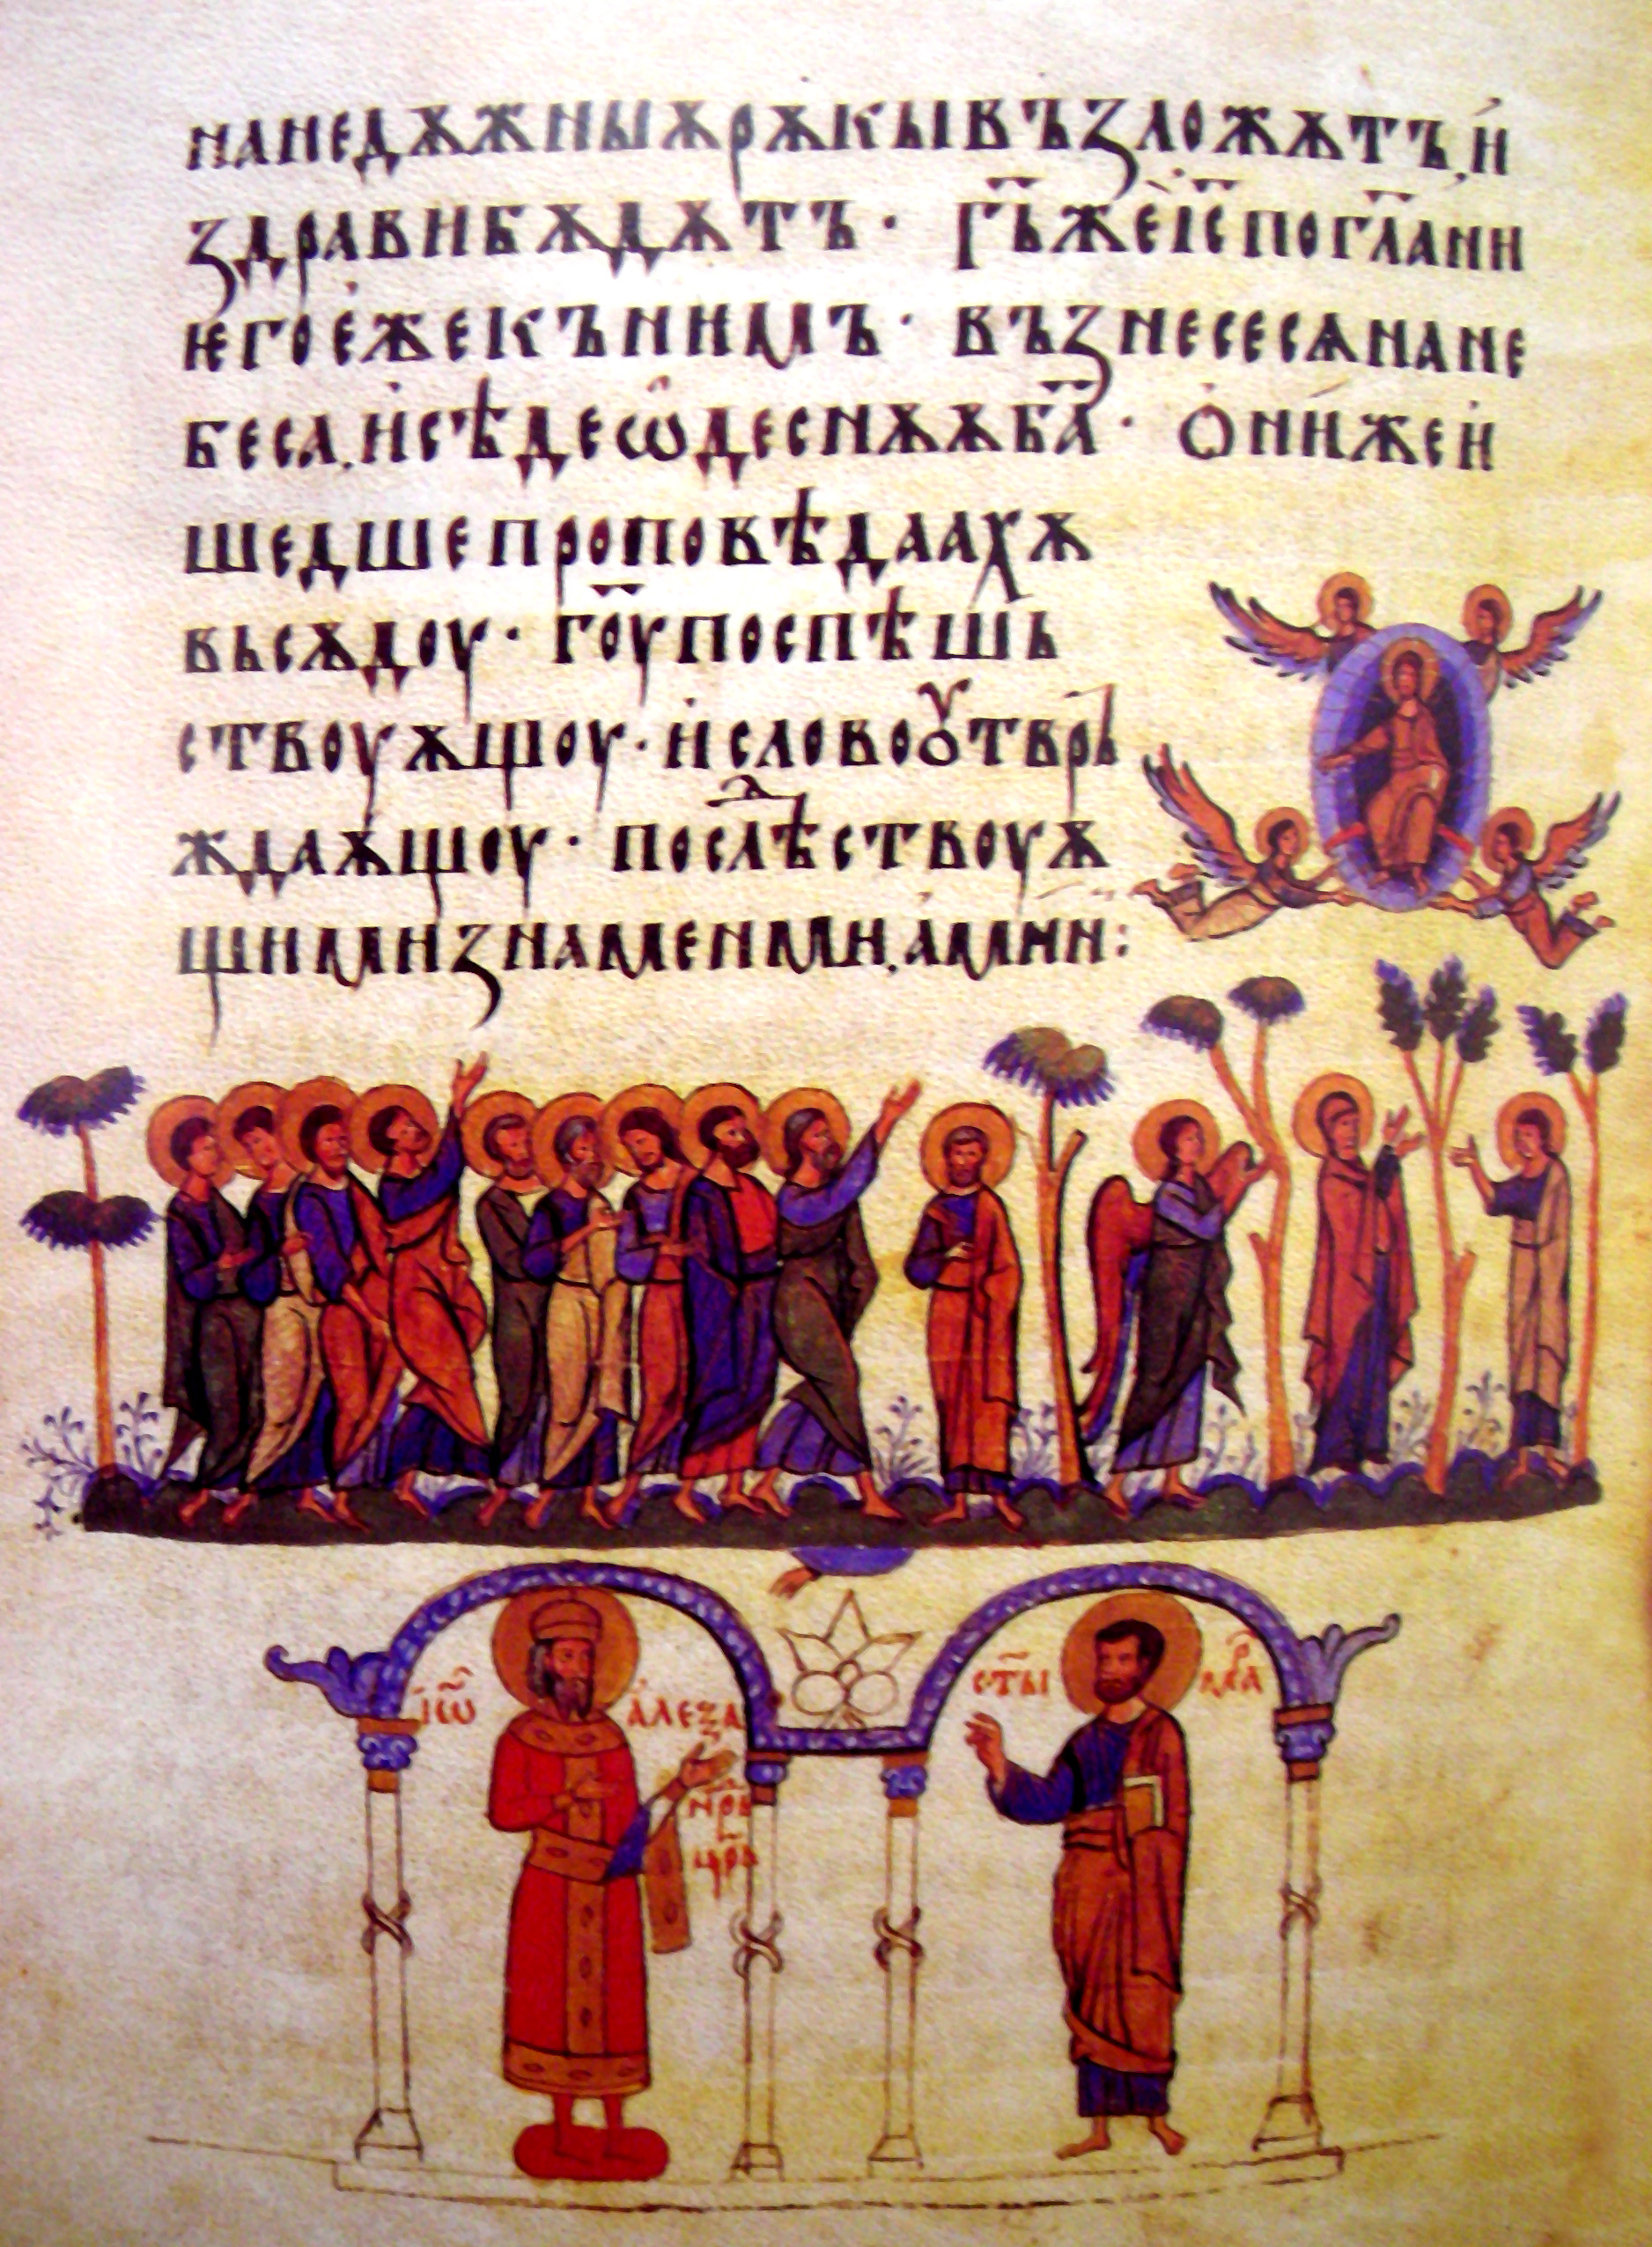 нанедѫжныѫрѫкывъзложѫтъ.и҆
здравибѫдѫтъ· г҃ъжеі҃спогл҃ани
ѥгоежекънимъ· възнесесѧнане
беса.и҆сѣдеѡ҆деснѫѫб҃а· Ѻни҆жеи҆
шедшепроповѣдаахѫ
вьсѫдоу· г҃оупоспѣшь
ствоуѫщоу·и҆словоꙋтврь
ждаѫщоу· послⷣѣствоуѫ
щимизнаменми.аминⸯ:
і҆ѡ҃
а҆леѯа
нрⷣь
цр҃ь
ст҃ы
мрⷬа